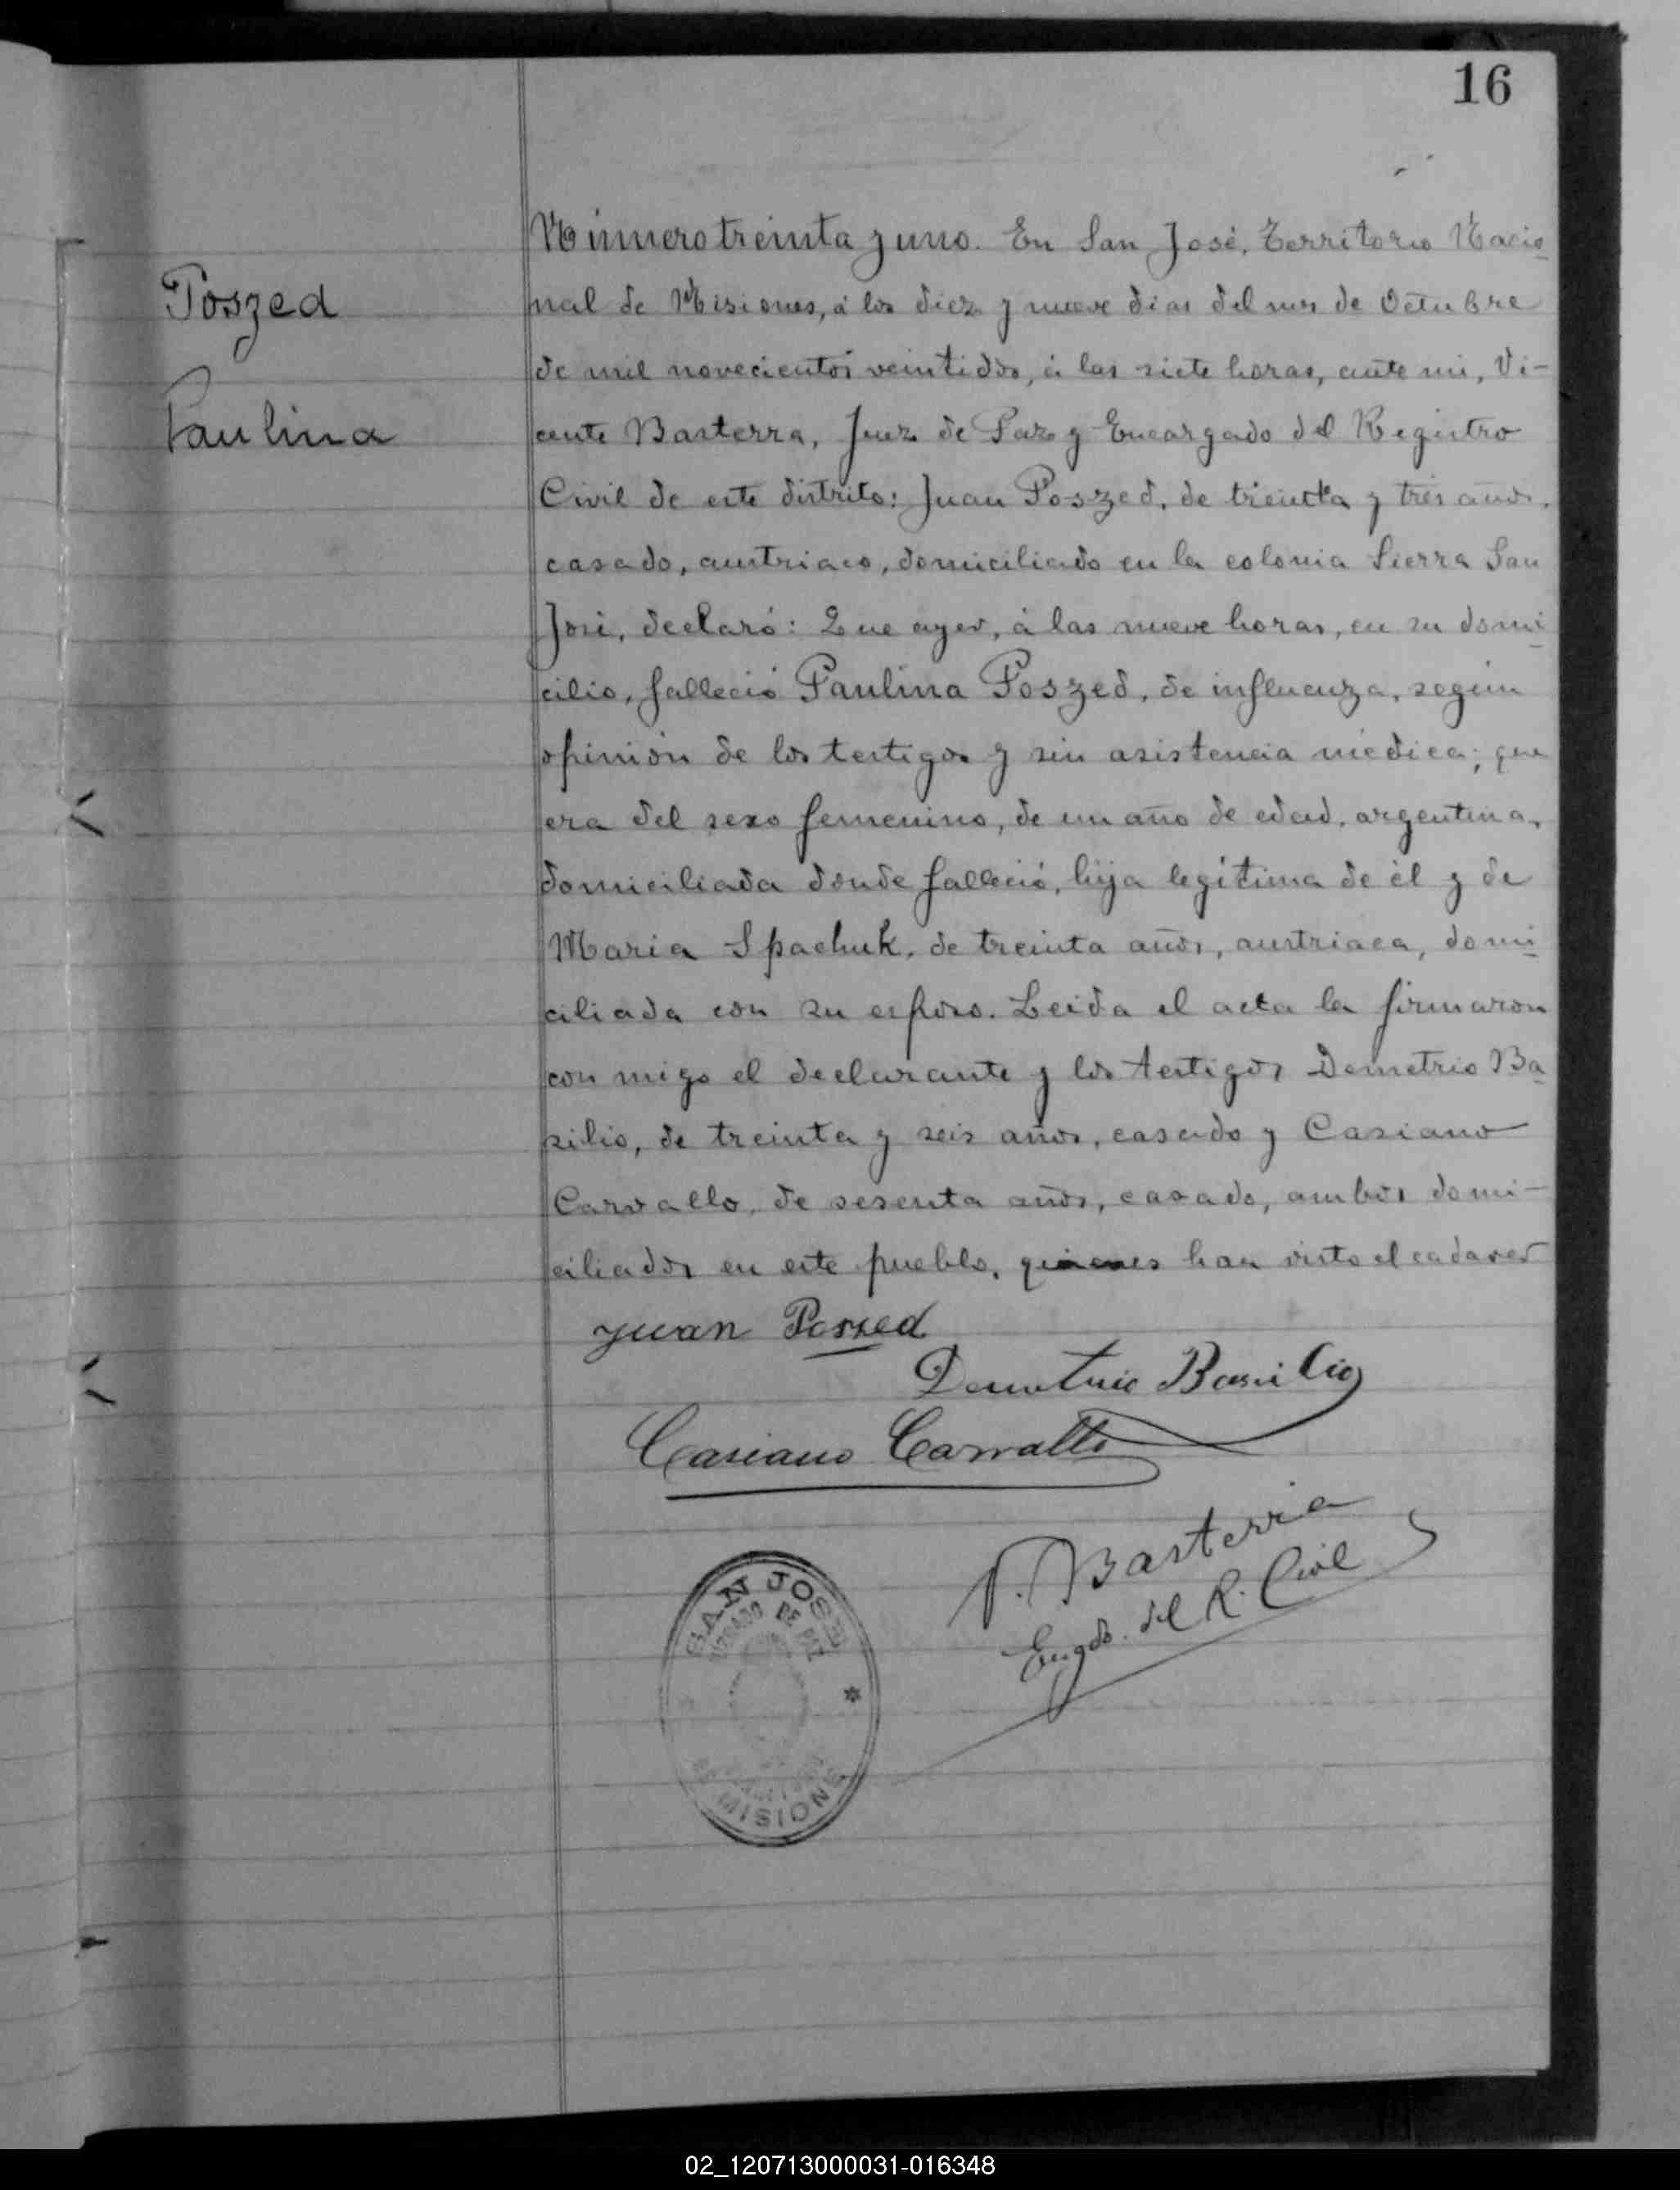 16
Poszed
Paulina
Número treinta y uno. En San José, Territorio Nacio
nal de Misiones, á los diez y nueve dias del mes de Octubre
de mil novecientos veintidós, á las siete horas, ante mi, Vi-
cente Basterra, Juez de Paz y Encargado del Registro
Civil de este distrito: Juan Poszed, de treinta y tres años,
casado, austriaco, domiciliado en la colonia Sierra San
José, declaró: Que ayer, á las nueve horas, en su domi
cilio, falleció Paulina Poszed, de influenza, según
opinión de los testigos y sin asistencia médica; que
era del sexo femenino, de un año de edad, argentina,
domiciliada donde falleció, hija legítima de él y de
Maria Spachuk, de treinta años, austriaca, domi
ciliada con su esposo. Leida el acta la firmaron
con migo el declarante y los testigos Demetrio Ba
silio, de treinta y seis años, casado y Casiano
Carvallo, de sesenta años, casado, ambos domi-
ciliados en este pueblo, quienes han visto el cadaver
Juan Poszed
Demetrio Basilio
Casiano Carvallo
V. Basterra
Engdo. del R. Civil
SAN JOSÉ
JUZGADO DE PAZ
MISIONES
02_120713000031-016348